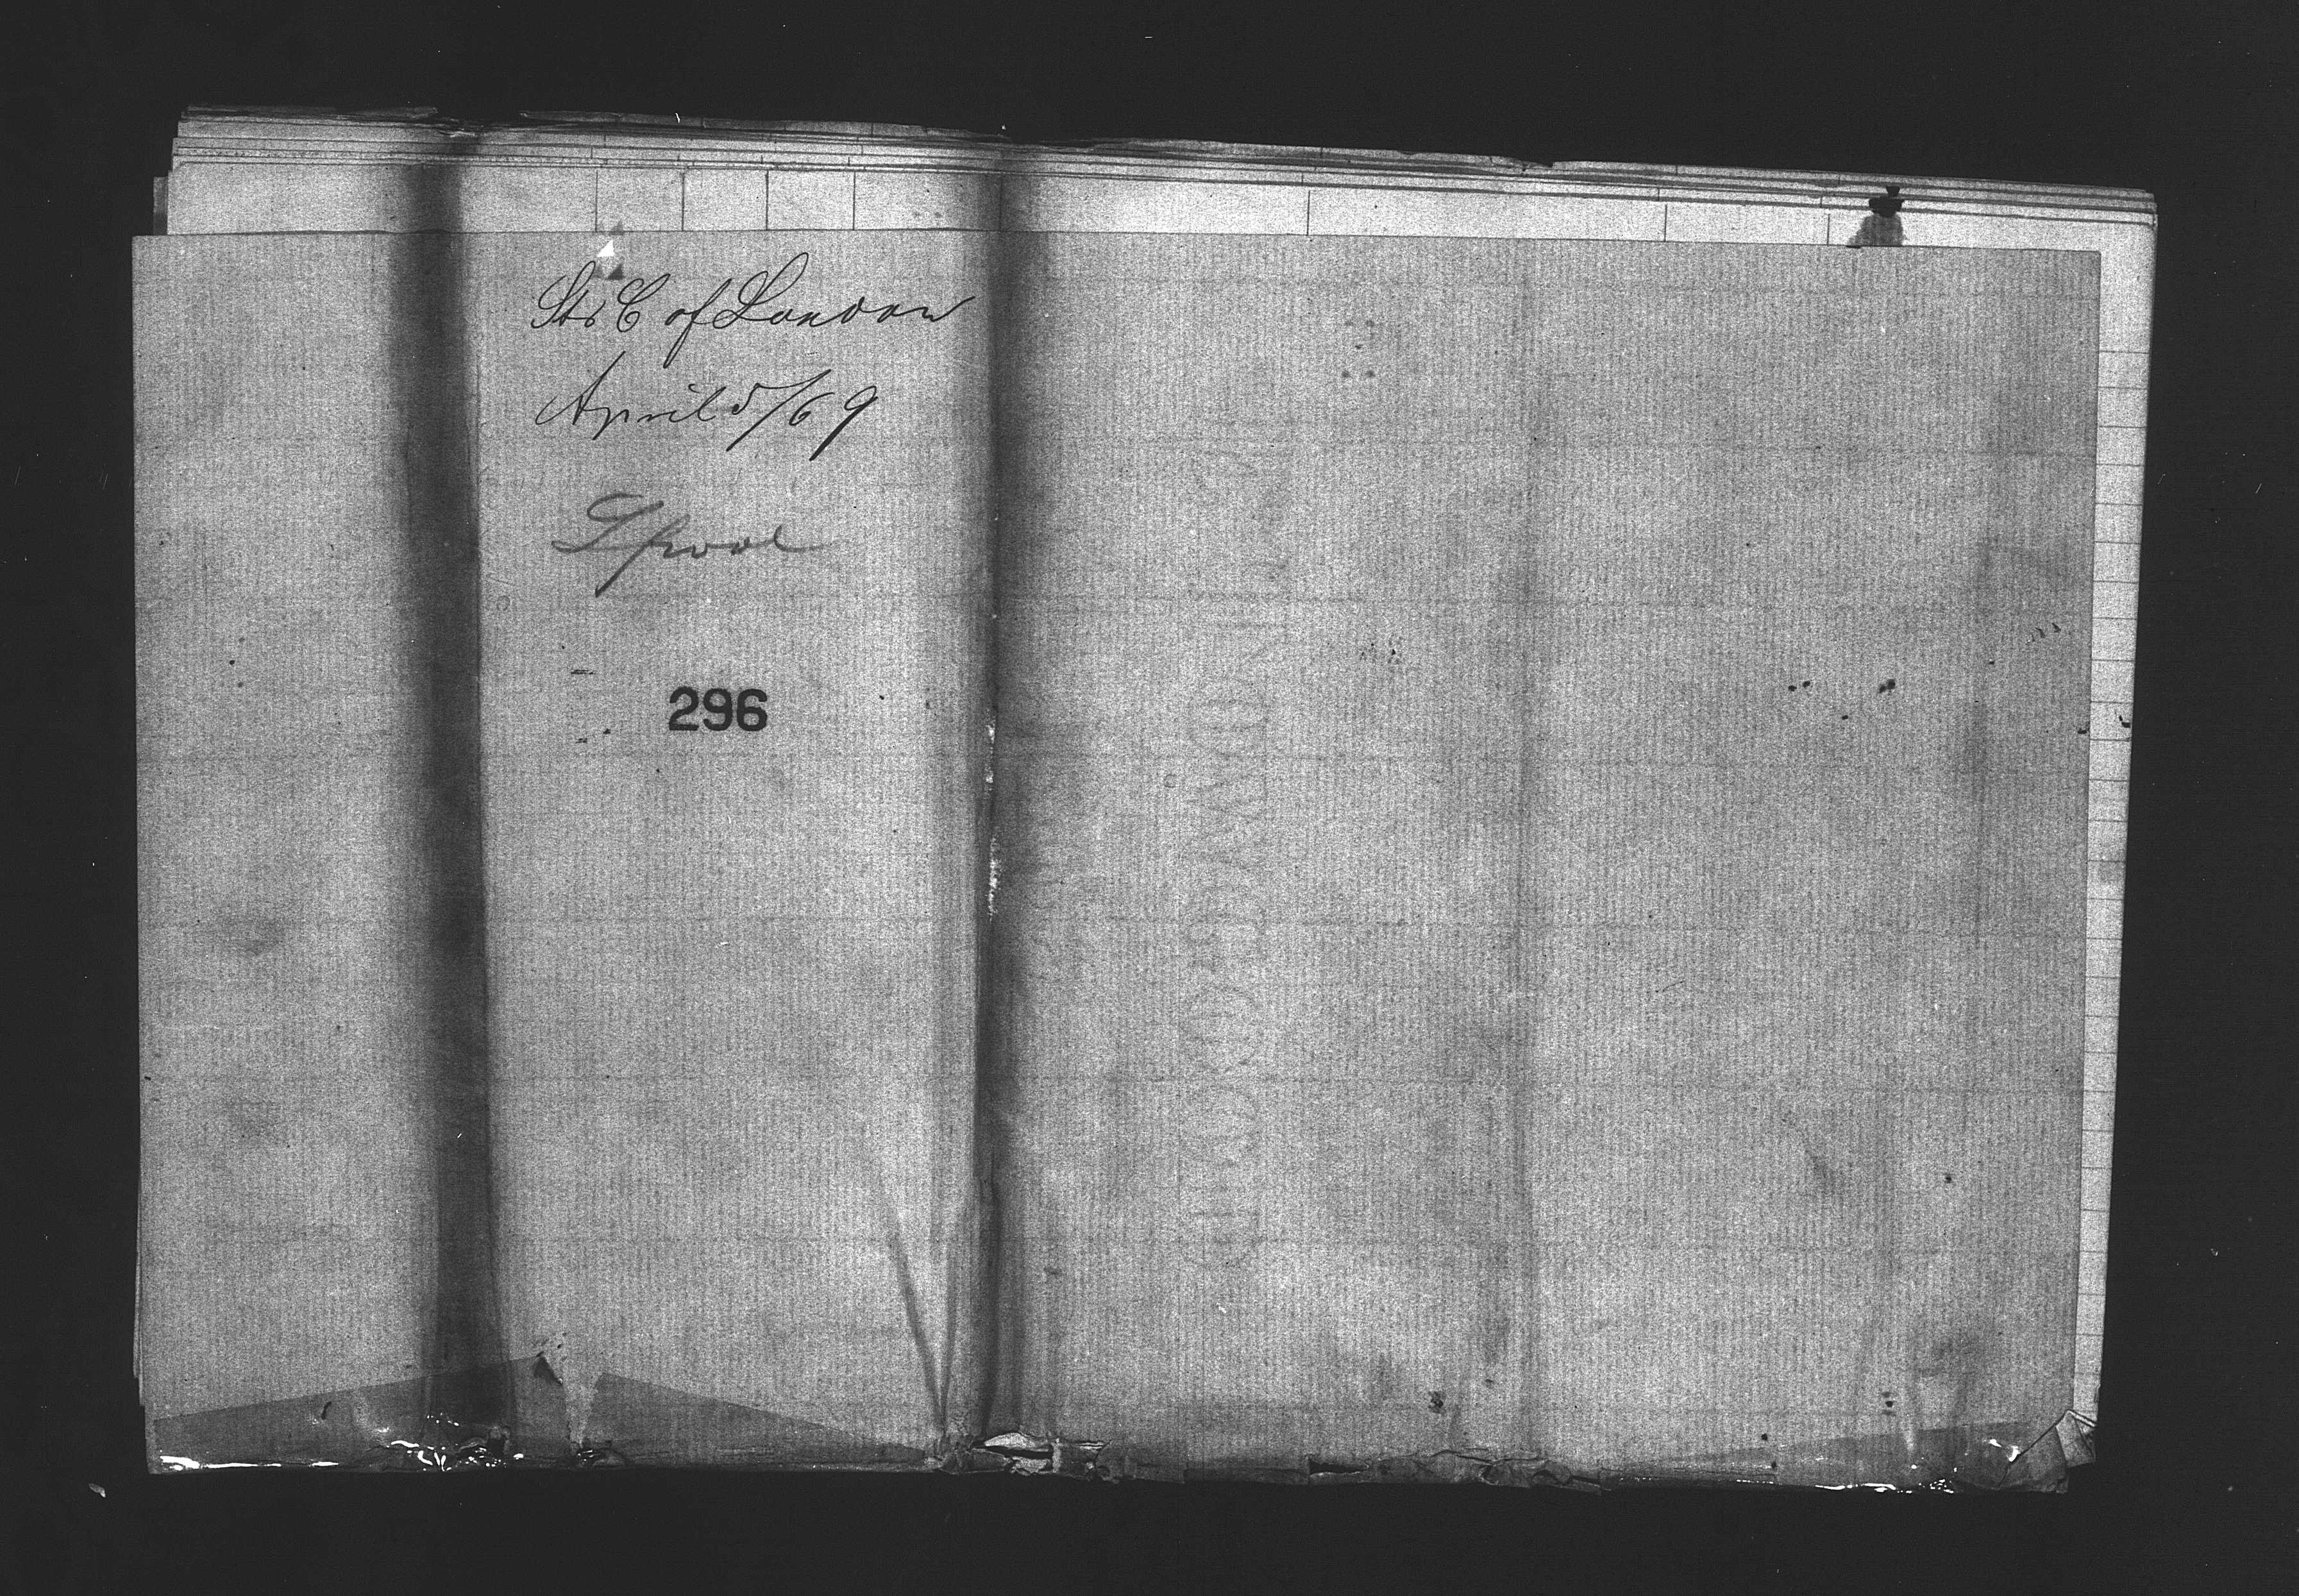 Str C of London
April 5/69
L'pool
296